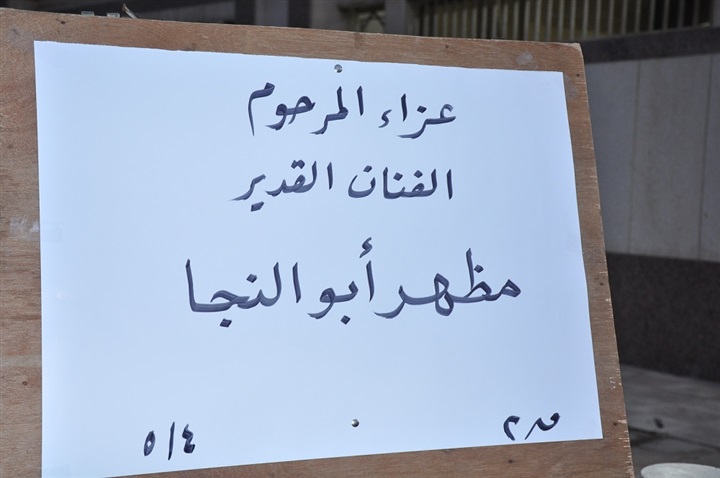 عزاء المرحوم
الفنان القدير
مظهر أبو النجا
٥/٤